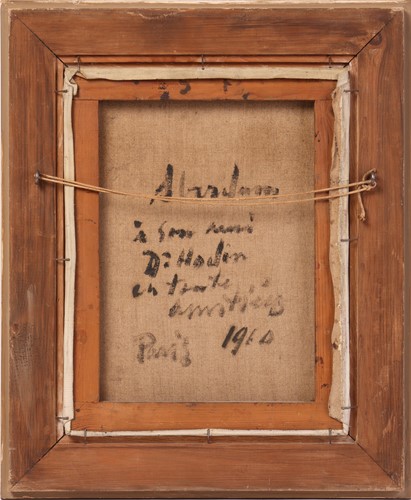 Aberdam
à son ami
Dr Hodin
en toute
amitiés
Paris 1960